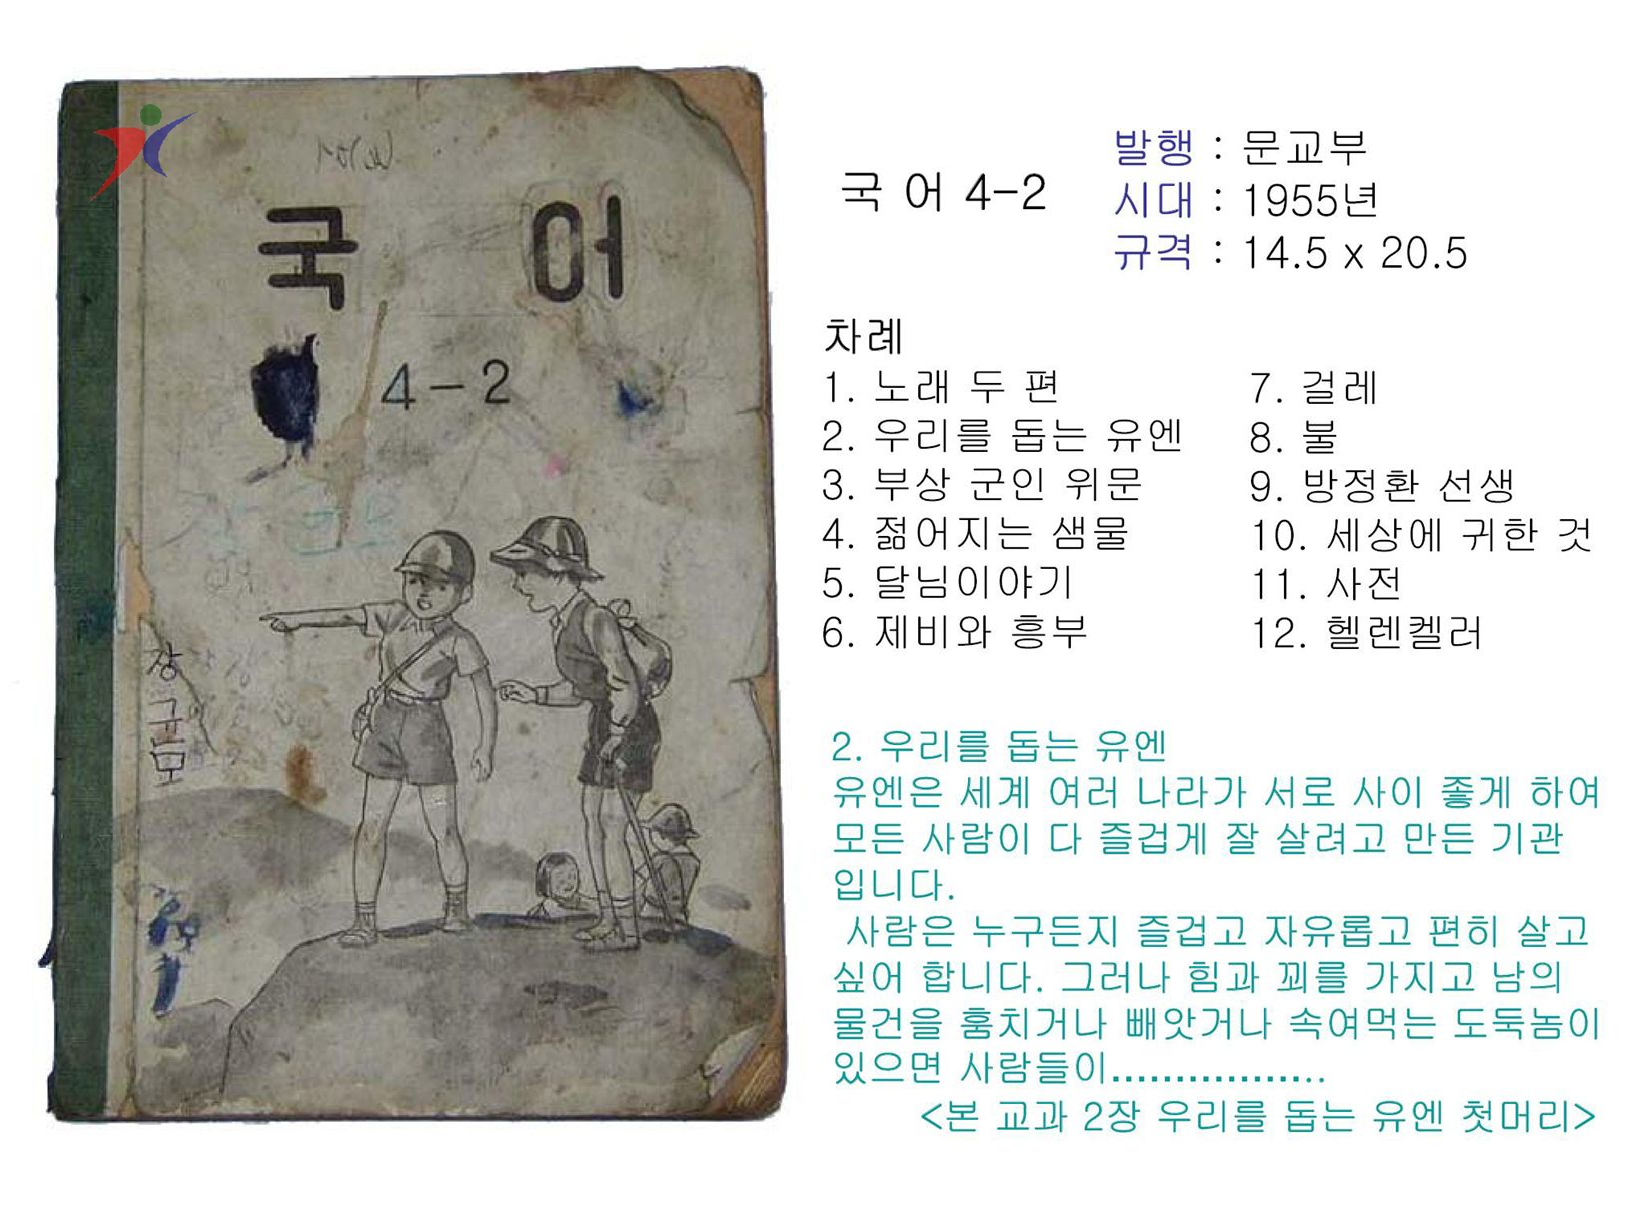 국 어
4-2
장
규
모
국 어 4-2
발행 : 문교부
시대 : 1955년
규격 : 14.5 x 20.5
차례
1. 노래 두 편
2. 우리를 돕는 유엔
3. 부상 군인 위문
4. 젊어지는 샘물
5. 달님이야기
6. 제비와 흥부
7. 걸레
8. 불
9. 방정환 선생
10. 세상에 귀한 것
11. 사전
12. 헬렌켈러
2. 우리를 돕는 유엔
유엔은 세계 여러 나라가 서로 사이 좋게 하여
모든 사람이 다 즐겁게 잘 살려고 만든 기관
입니다.
사람은 누구든지 즐겁고 자유롭고 편히 살고
싶어 합니다. 그러나 힘과 꾀를 가지고 남의
물건을 훔치거나 빼앗거나 속여먹는 도둑놈이
있으면 사람들이..................
<본 교과 2장 우리를 돕는 유엔 첫머리>